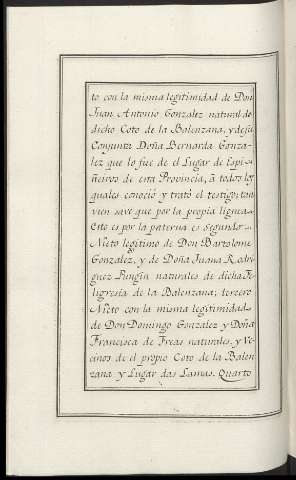 to con la misma legitimidad de Don
Juan Antonio Gonzalez natural de
dicho Coto de la Balenzana, y de su
Conjunta Doña Bernarda Gonza-
lez que lo fue de el Lugar de Espi-
ñeiros de esta Provincia, à todos los
quales conociò y tratò el testigo: tan
vien save que por la propia linea
Esto es por la paterna es segundo
Nieto legitimo de Don Bartolome
Gonzalez, y de Doña Juana Rodri
guez Pungin naturales de dicha Fe-
ligresia de la Balenzana; tercero
Nieto con la misma legitimidad
de Don Domingo Gonzalez y Doña
Francisca de Freas naturales, y Ve-
cinos de el propio Coto de la Balen
zana y Lugar das Lamas. Quarto